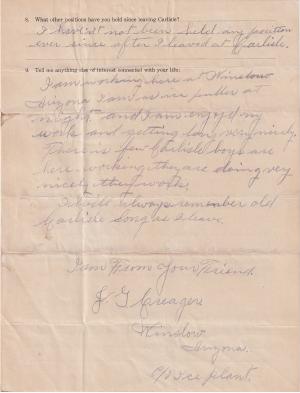 8. What other positions have you held since leaving Carlisle?
I have'nt not been held any position
ever since after I leaved at Carlisle.
9. Tell me anything else of interest connected with your life:
I am working here at Winslow
Arizona I am as ice puller at
night and I am enjoyd my
work and getting long very nicely.
There is few Carlisle boys are
here working they are doing very
nicely they works.
I always remember old
Carlisle song as I leave.
I am From Your Friend.
J G Creager
Winslow
Arizona.
c/o Ice plant.